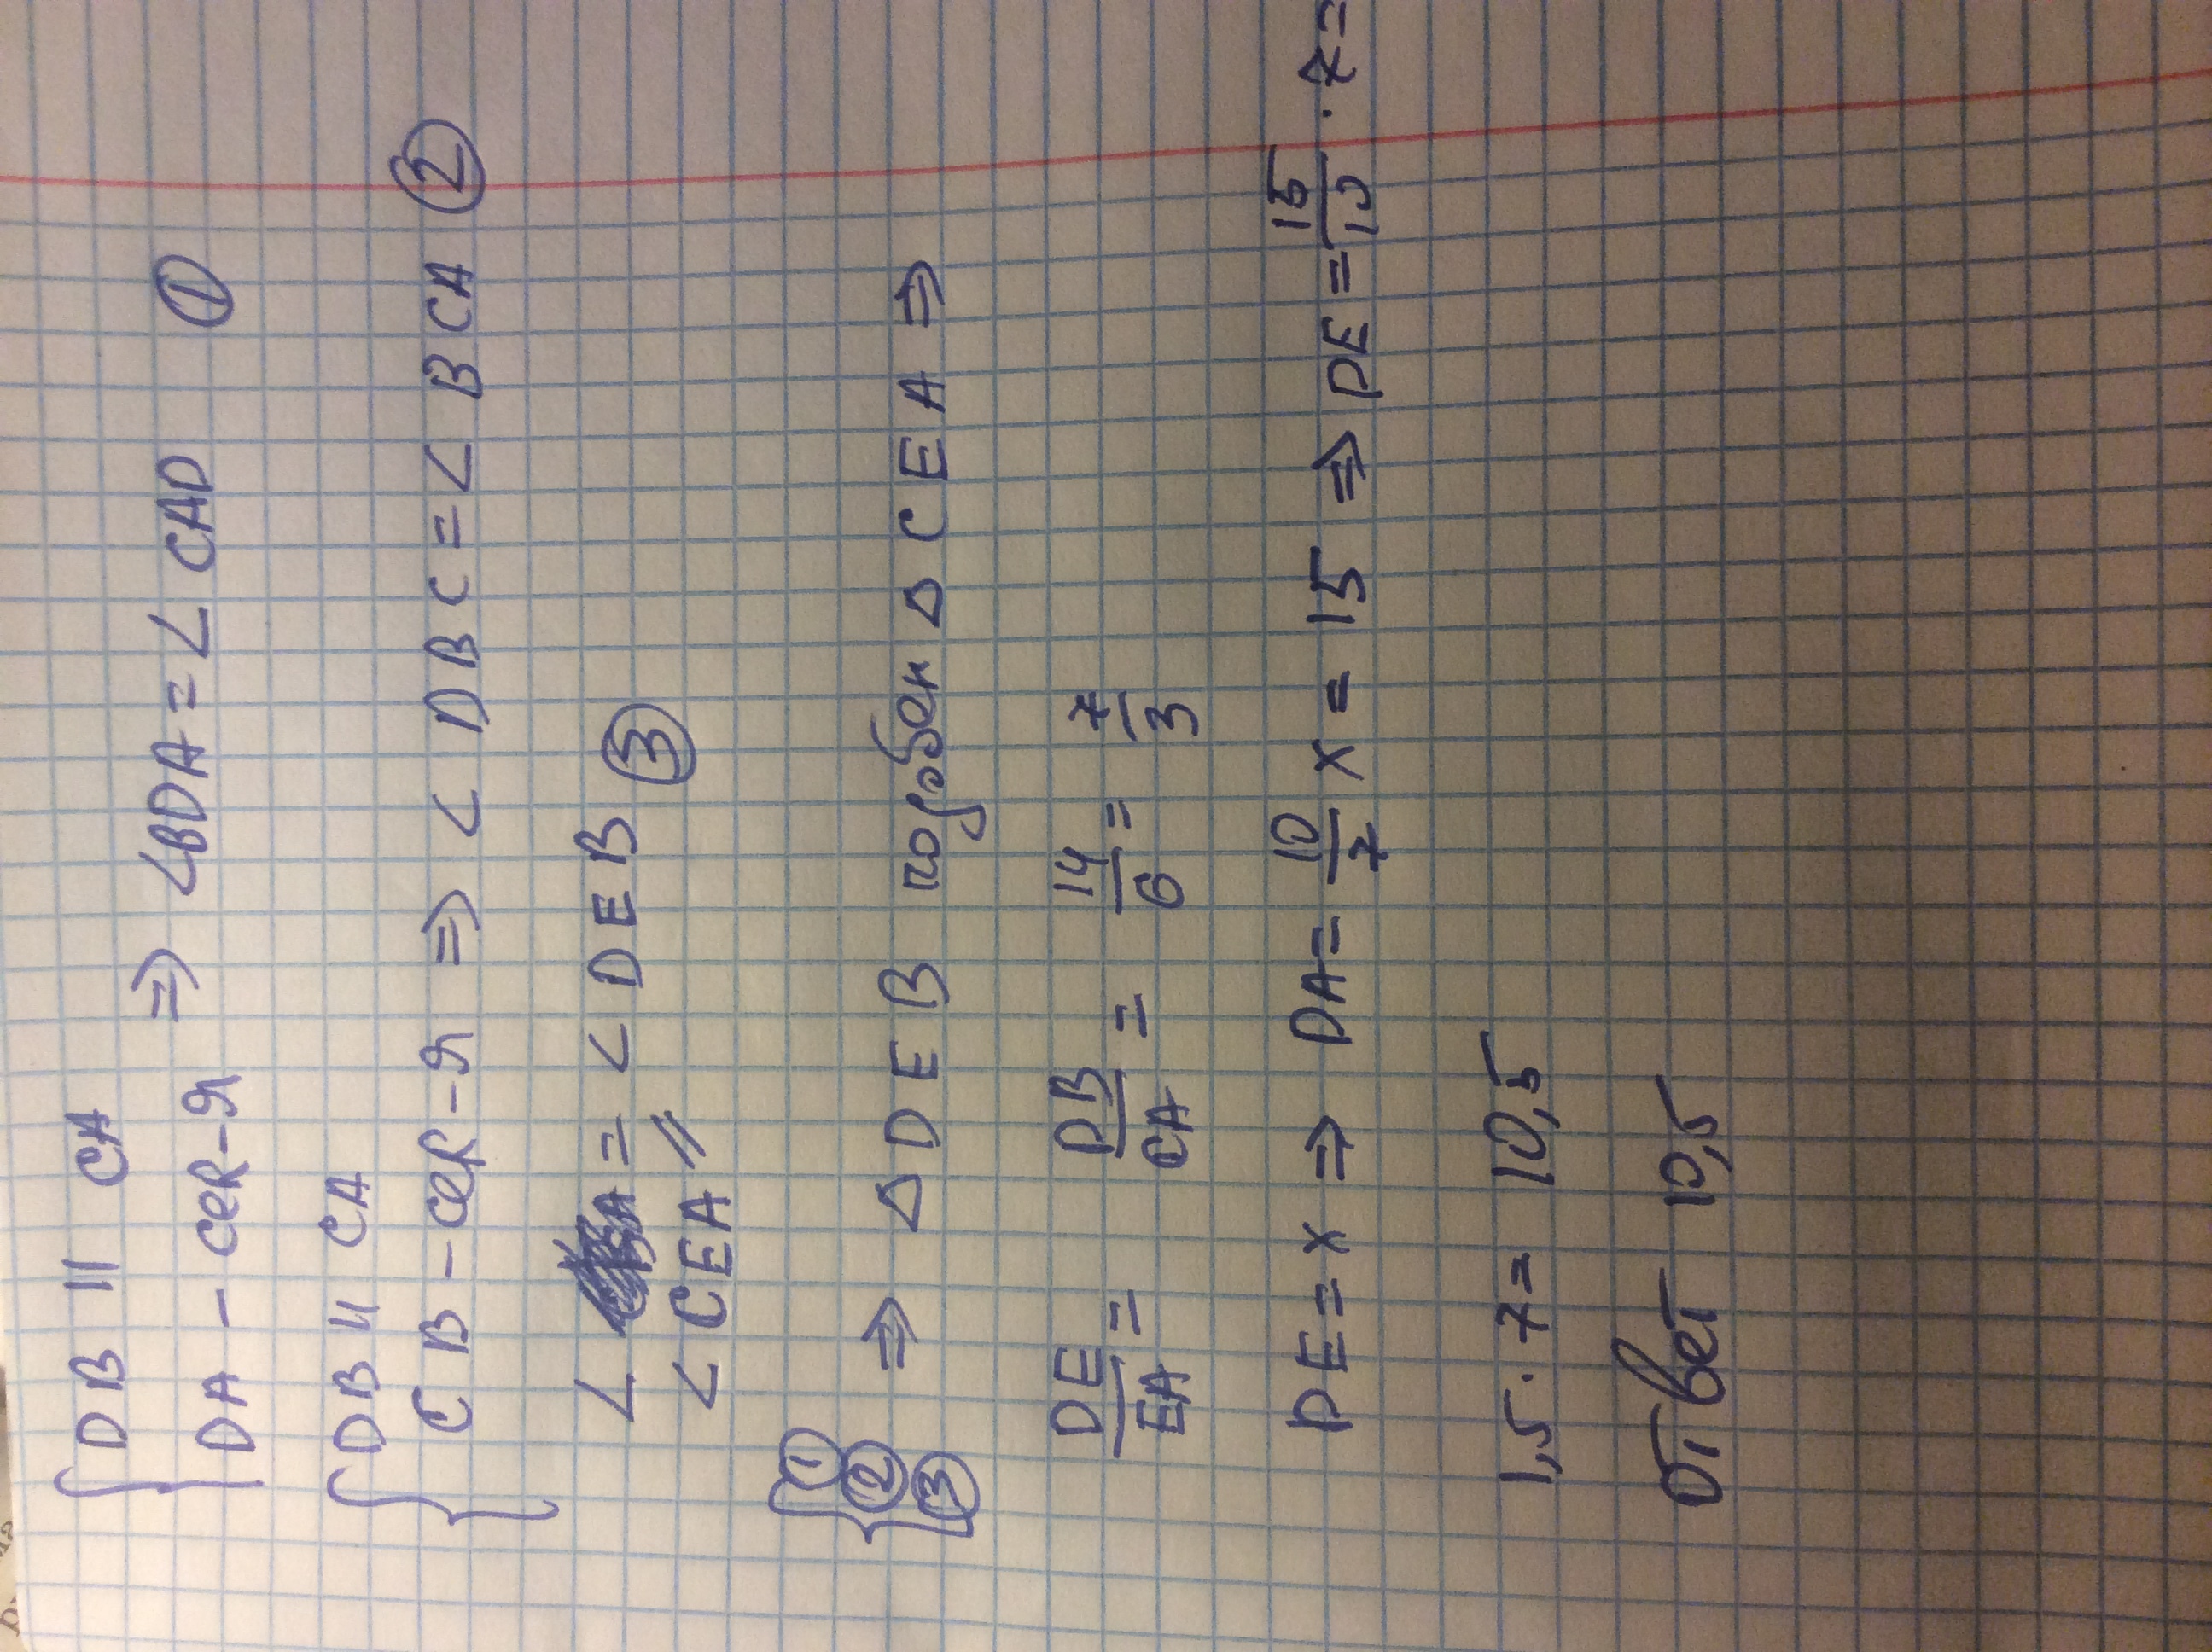 { DB || CA
{ DA – сек-я ⇒ ∠BDA = ∠CAD ①
{ DB || CA
{ CB – сек-я ⇒ ∠DBC = ∠BCA ②
∠ A = ∠DEB ③
∠CEA //
{ ① ② ③ ⇒ △DEB подобен △CEA ⇒
DE/EA = DB/CA = 14/6 = 7/3
DE = x ⇒ DA = 10/7 x = 15 ⇒ DE = 15/10 · 7 =
1,5 · 7 = 10,5
Ответ 10,5